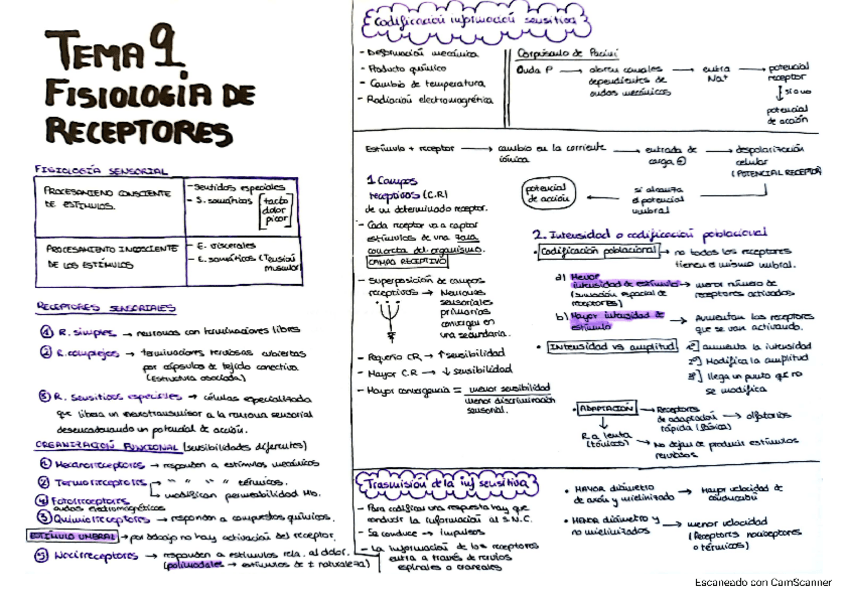 TEMA 9
FISIOLOGÍA DE
RECEPTORES
FISIOLOGÍA SENSORIAL
PROCESAMIENO CONSCIENTE
DE ESTÍMULOS.
- Sentidos especiales
- S. somáticos [tacto
dolor
picor]
PROCESAMIENTO INCONSCIENTE
DE LOS ESTÍMULOS
- E. viscerales
- E. somáticos (Tensión
muscular
RECEPTORES SENSORIALES
① R. simples → neuronas con terminaciones libres
② R. complejos → terminaciones nerviosas cubiertas
por cápsulas de tejido conectivo
(estructura asociada)
③ R. Sensitivos especiales → células especializada
que libera un neurotransmisor a la neurona sensorial
desencadenando un potencial de acción.
ORGANIZACIÓN FUNCIONAL (sensibilidades diferentes)
① Mecanorreceptores → responden a estímulos mecánicos
② Termorreceptores → " " " térmicos.
→ modifican permeabilidad Mb.
④ Fotorreceptores
ondas electromagnéticas
③ Quimiorreceptores → responden a compuestos químicos.
ESTÍMULO UMBRAL → por debajo no hay activación del receptor.
⑤ Nocirreceptores → responden a estímulos rela. al dolor.
(polimodales → estímulos de ≠ naturaleza)
Codificación información sensitiva
- Deformación mecánica
- Producto químico
- Cambio de temperatura
- Radiación electromagnética
Corpúsculo de Pacini
Onda P → abren canales dependientes de ondas mecánicas → entra Na+ → potencial receptor
↓ si o no
potencial
de acción
Estímulo + receptor → cambio en la corriente iónica → entrada de carga ⊕ → despolarización celular
(POTENCIAL RECEPTOR)
si alcanza
el potencial
umbral
potencial
de acción
1 Campos
receptivos (C.R)
de un determinado receptor.
- Cada receptor va a captar
estímulos de una zona
concreta del organismo.
CAMPO RECEPTIVO
- Superposición de campos
receptivos → Neuronas
sensoriales
primarias
convergen en
una secundaria.
- Pequeño CR → ↑ sensibilidad
- Mayor C.R → ↓ sensibilidad
- Mayor convergencia = menor sensibilidad
menor discriminación
sensorial.
2. Intensidad o codificación poblacional
• Codificación poblacional → no todos los receptores
tienen el mismo umbral.
a) Menor
intensidad de estímulo → menor número de
(sumación espacial de receptores activados
receptores)
b) Mayor intensidad de
estímulo → Aumentan los receptores
que se van activando.
• INTENSIDAD vs AMPLITUD
1º] aumenta la intensidad
2º] Modifica la amplitud
3º] llega un punto que no
se modifica
• ADAPTACIÓN → Receptores
de adaptación → olfatorios
rápida (fásica)
R. a lenta
(tónicos) → No dejan de producir estímulos
nerviosos.
Trasmisión de la inf sensitiva
- Para codificar una respuesta hay que
conducir la información al S.N.C.
- Se conduce → impulsos
- La información de los receptores
entra a través de nervios
espinales o craneales
• MAYOR diámetro
de axón y mielinizado → Mayor velocidad de
conducción
• MENOR diámetro y
no mielinizados → menor velocidad
(Receptores nociceptores
o térmicos)
Escaneado con CamScanner